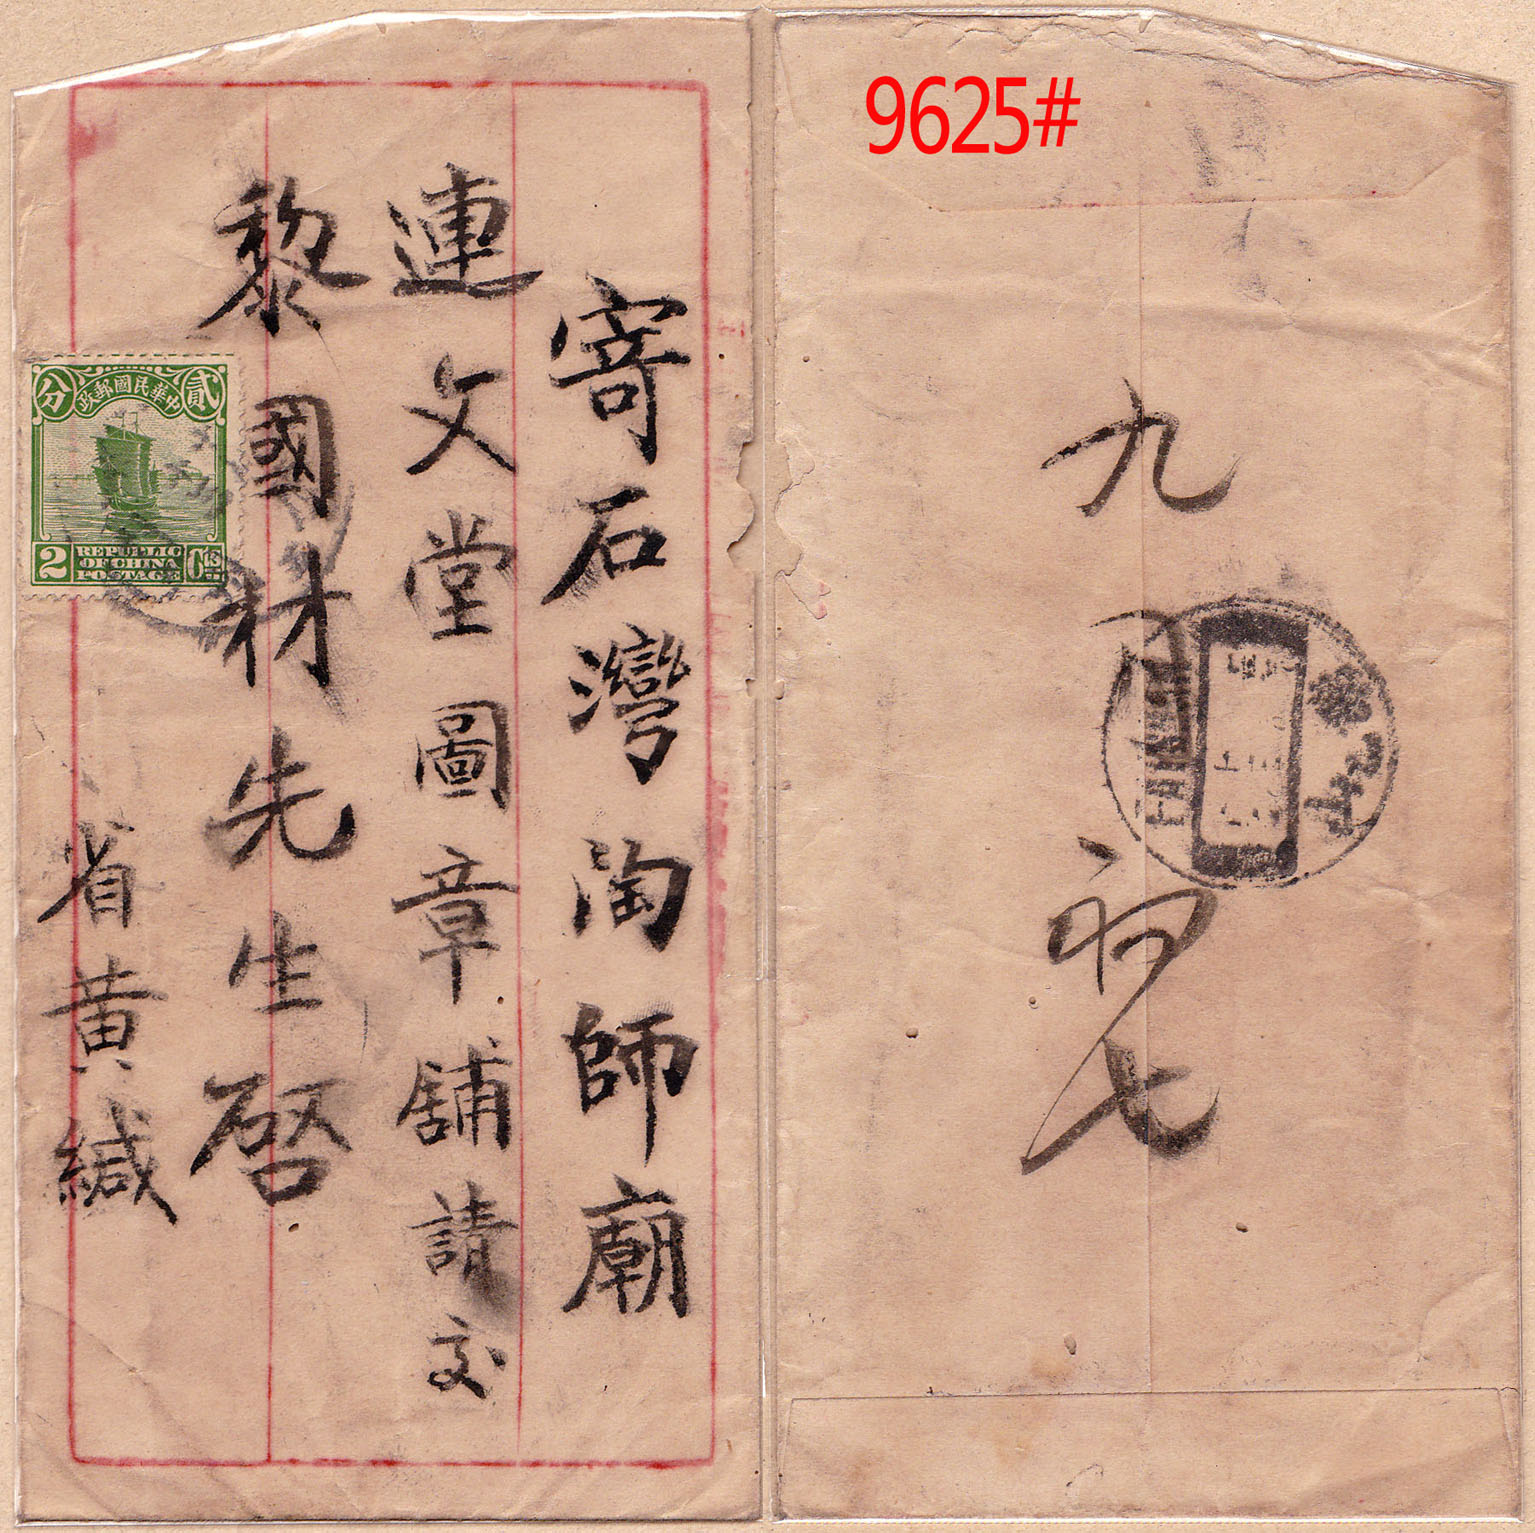 寄石灣陶師廟
連文堂圖章舖請交
黎國材先生啓
省黃緘
中華民國郵政
貳
分
2
REPUBLIC
OF CHINA
POSTAGE
CTS
9625#
九
初七